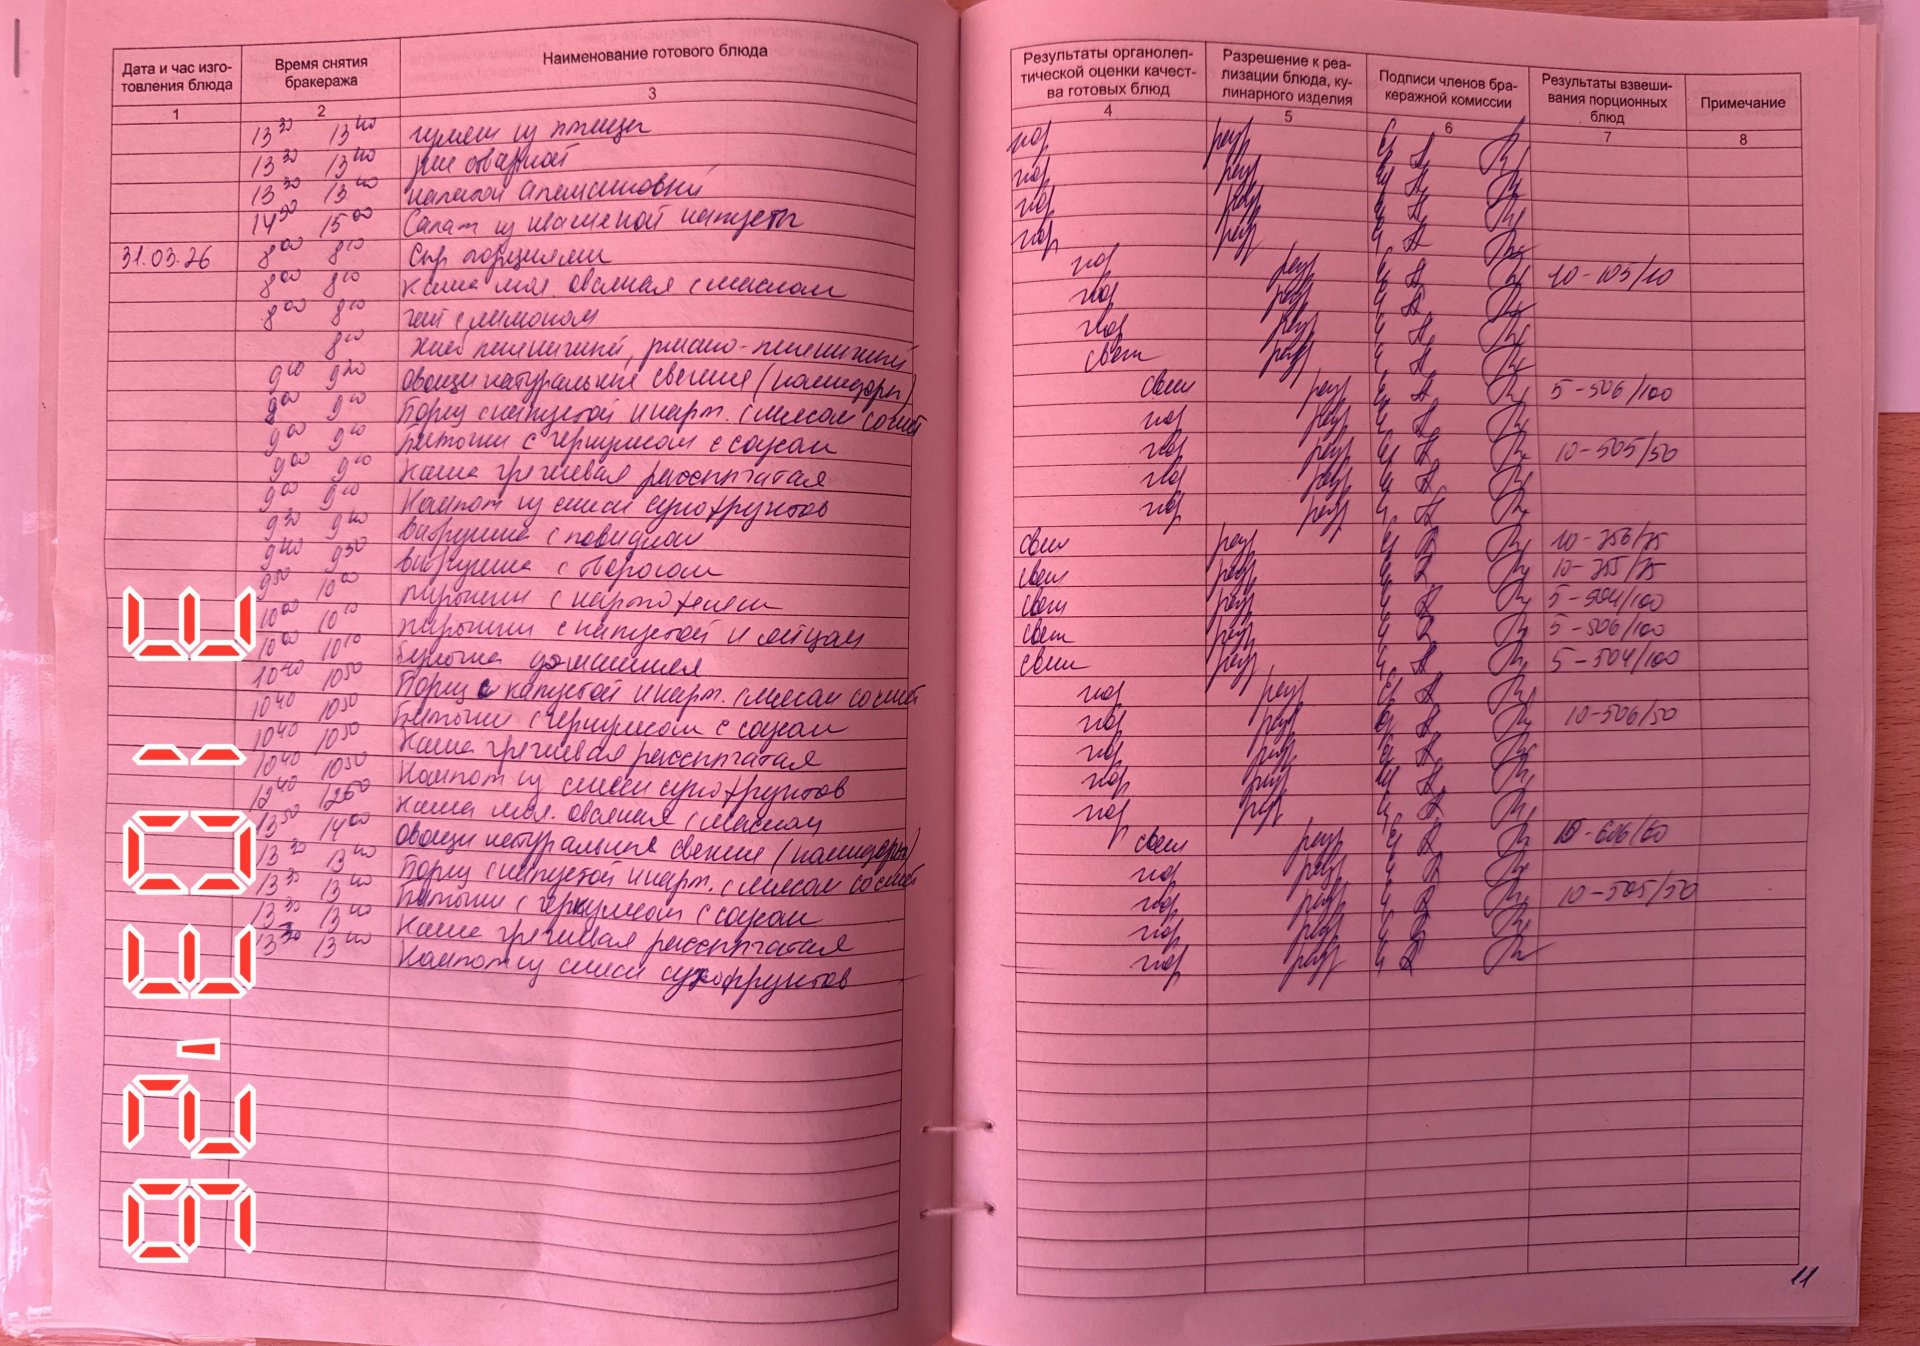 Дата и час изго-
товления блюда
Время снятия
бракеража
Наименование готового блюда
1 2 3
13 30 13 40 гуляш из птицы
13 30 13 40 рис отварной
13 30 13 40 напиток апельсиновый
14 50 15 00 Салат из квашеной капусты
31.03.26 8 00 8 10 Сыр порциями
8 00 8 10 Каша мол. овсяная с маслом
8 00 8 10 чай с лимоном
8 10 хлеб пшеничный, ржано-пшеничный
9 10 9 20 овощи натуральные свежие (помидоры)
9 00 9 10 Борщ с капустой и карт. с мясом со смет
9 00 9 10 Биточки с геркулесом с соусом
9 00 9 10 Каша гречневая рассыпчатая
9 00 9 10 Компот из смеси сухофруктов
9 30 9 40 ватрушка с повидлом
9 40 9 50 ватрушка с творогом
9 50 10 00 пирожки с картофелем
10 00 10 10 пирожки с капустой и яйцом
10 00 10 10 булочка домашняя
10 40 10 50 Борщ с капустой и карт. с мясом со смет
10 40 10 50 Биточки с геркулесом с соусом
10 40 10 50 Каша гречневая рассыпчатая
10 40 10 50 Компот из смеси сухофруктов
12 40 12 50 Каша мол. овсяная с маслом
13 50 14 00 овощи натуральные свежие (помидоры)
13 30 13 40 Борщ с капустой и карт. с мясом со смет
13 30 13 40 Биточки с геркулесом с соусом
13 30 13 40 Каша гречневая рассыпчатая
13 30 13 40 Компот из смеси сухофруктов
Результаты органолеп-
тической оценки качест-
ва готовых блюд
Разрешение к реа-
лизации блюда, ку-
линарного изделия
Подписи членов бра-
керажной комиссии
Результаты взвеши-
вания порционных
блюд
Примечание
4 5 6 7 8
гот разр
гот разр
гот разр
гот разр
гот разр 10-105/10
гот разр
гот разр
свеж разр
свеж разр 5-506/100
гот разр
гот разр 10-505/50
гот разр
гот разр
свеж разр 10-756/75
свеж разр 10-755/75
свеж разр 5-504/100
свеж разр 5-506/100
свеж разр 5-504/100
гот разр
гот разр 10-506/50
гот разр
гот разр
гот разр
свеж разр 10-606/60
гот разр
гот разр 10-505/50
гот разр
гот разр
11
31.03.'26